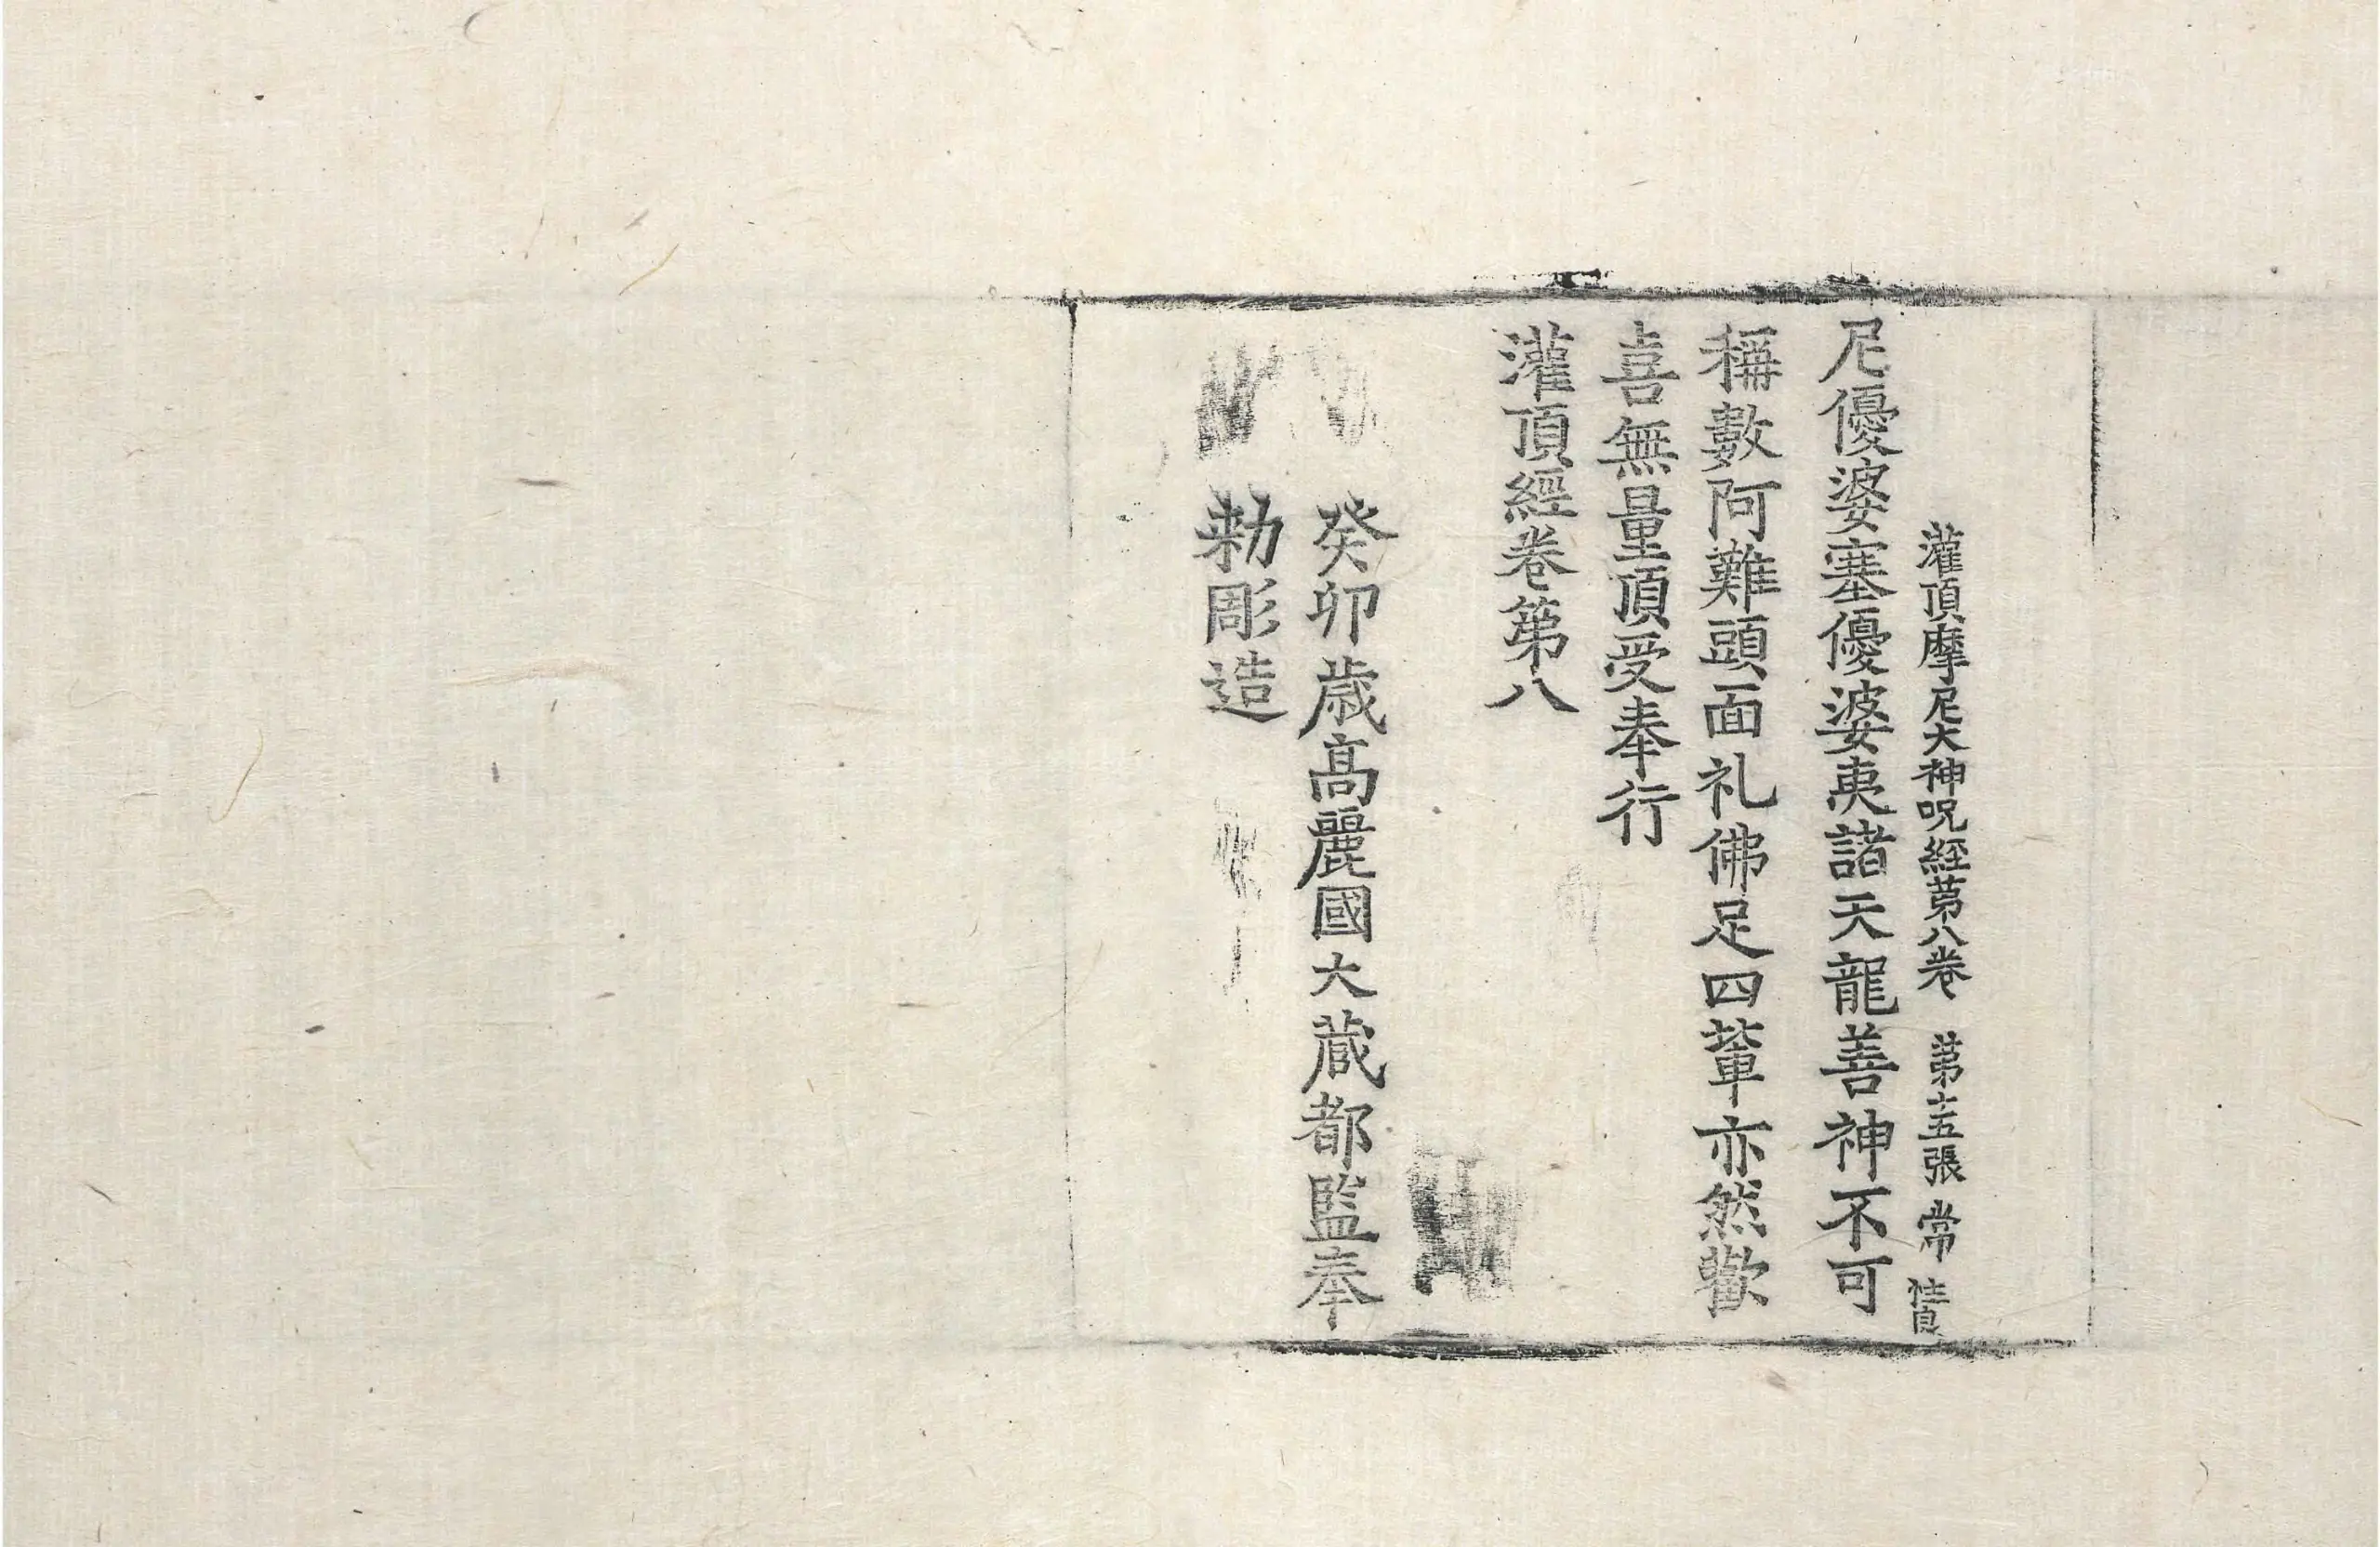 灌頂摩尼大神呪経苐八卷 苐十五張 常
尼優婆塞優婆夷諸天龍善神不可
稱數阿難頭面礼佛足四輩亦然歡
喜無量頂受奉行
灌頂經卷苐八
癸卯歲高麗國大藏都監奉
勅彫造